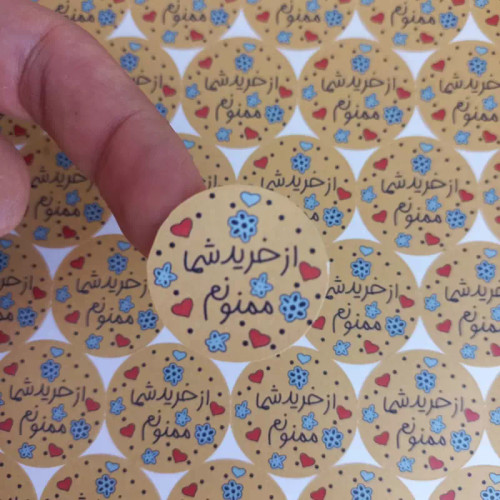 از خرید شما
ممنونم